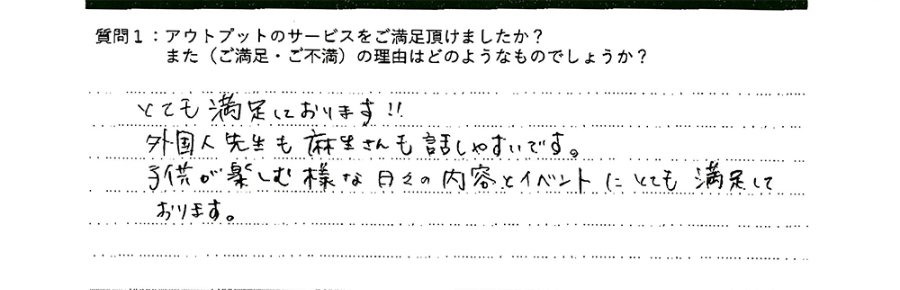 質問1:アウトプットのサービスをご満足頂けましたか?
また(ご満足・ご不満)の理由はどのようなものでしょうか?
とても満足しております!!
外国人先生も麻生さんも話しやすいです。
子供が楽しむ様な日々の内容とイベントにとても満足して
おります。